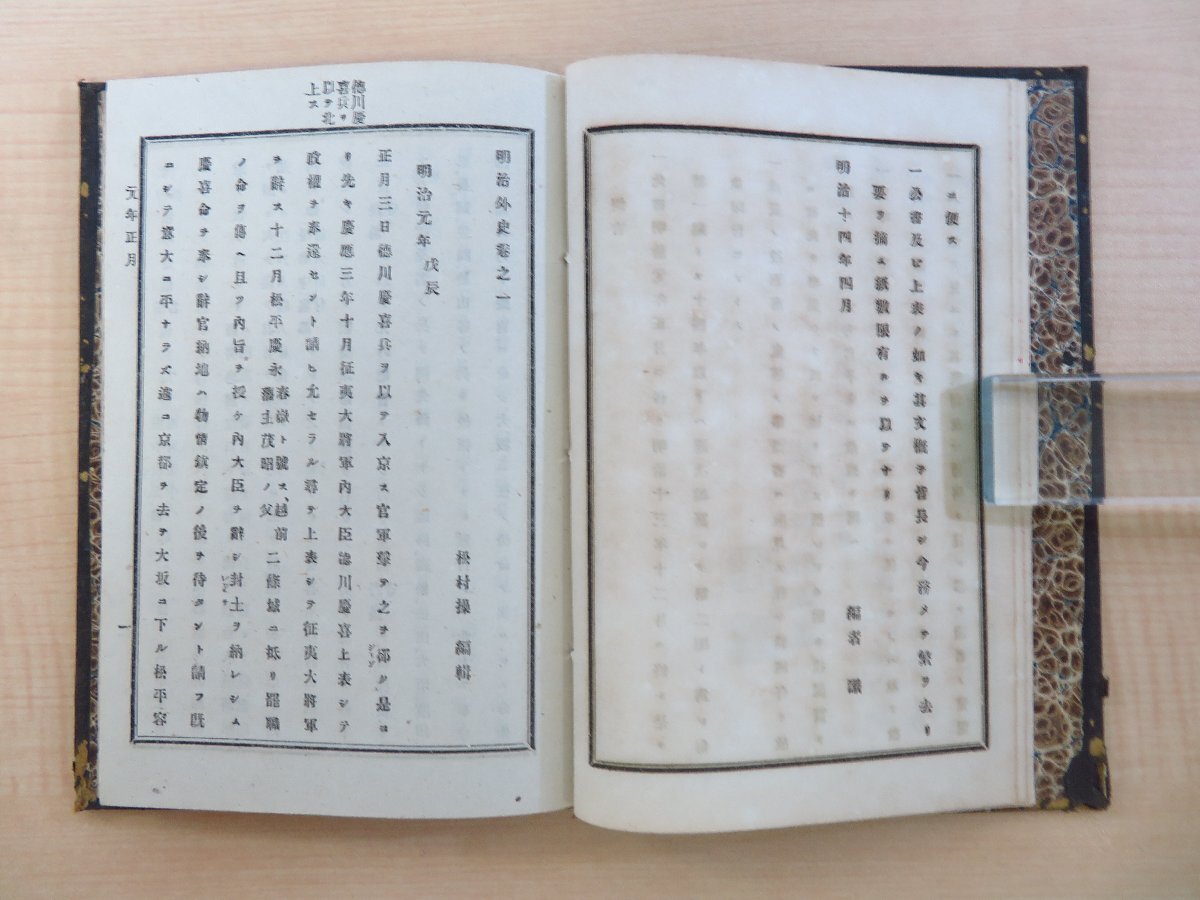 ニ便ス
一公書及ヒ上表ノ如キ其文概子冗長シ今務メテ繁ヲ去リ
要ヲ摘ム紙數限有ルヲ以テナリ
明治十四年四月
編者 識
明治外史卷之一
松村操 編輯
明治元年 戊辰
德川慶
喜兵ヲ
以テ北
上ス
正月三日德川慶喜兵ヲ以テ入京ス官軍擊テ之ヲ郤ク是ヨ
リ先キ慶應三年十月征夷大將軍內大臣德川慶喜上表シテ
政權ヲ奉還セント請ヒ允セラル尋テ上表シテ征夷大將軍
ヲ辭ス十二月松平慶永春嶽ト號ス、越前藩主茂昭ノ父二條城ニ抵リ罷職
ノ命ヲ傳ヘ且ツ內旨ヲ授ケ內大臣ヲ辭シ封土ヲ納レシム
慶喜命ヲ奉シ辭官納地ハ物情鎮定ノ後ヲ待タント請フ既
ニシテ意大ニ平ナラズ遂ニ京都ヲ去テ大坂ニ下ル松平容
元年正月
一